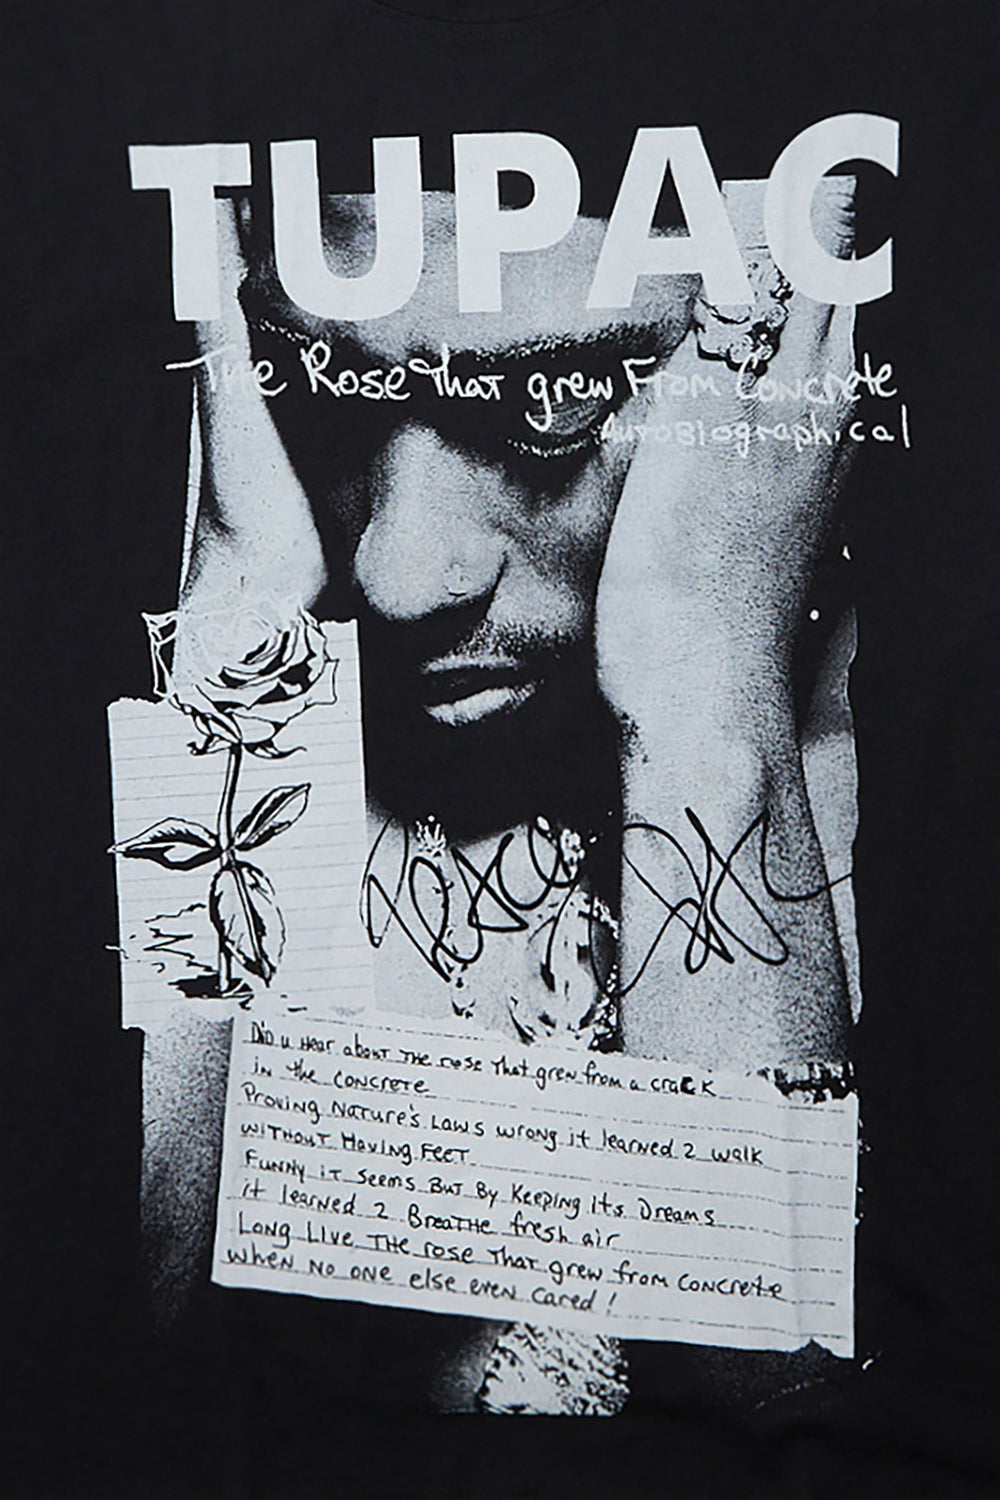 TUPAC
The Rose That grew From Concrete
Autobiographical
Peace 2PAC
Did u Hear about THE rose That grew from a crack
in the concrete
Proving Nature's Laws wrong it learned 2 walk
WITHOUT Having FEET
FUNNY iT seems But By Keeping its Dreams
it learned 2 BreaTHe fresh air
Long Live THE rose THAT grew from concrete
when NO one else even cared!